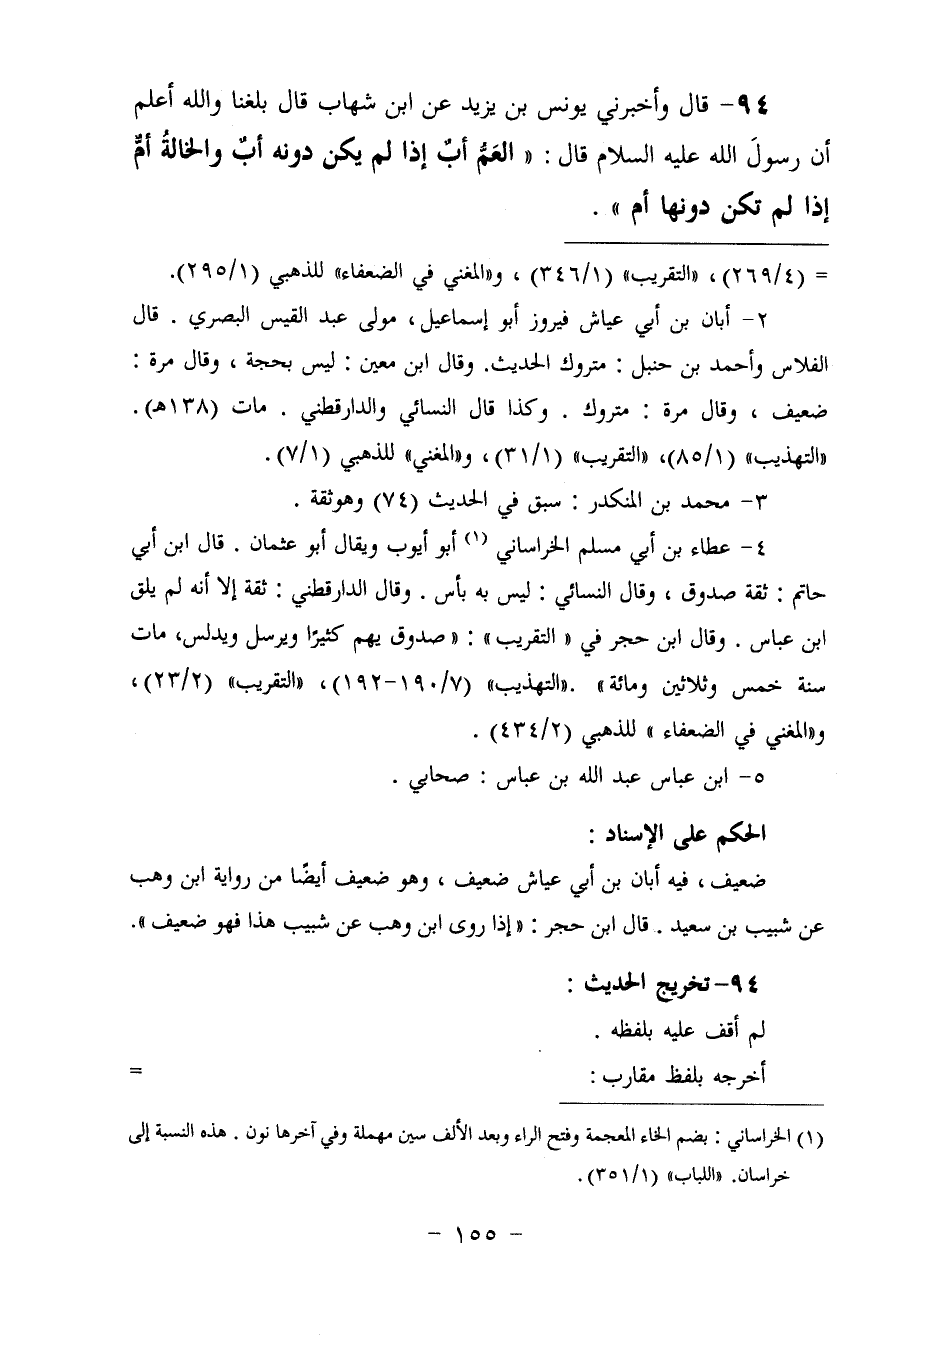 ٩٤- قال وأخبرني يونس بن يزيد عن ابن شهاب قال بلغنا والله أعلم
أن رسولَ الله عليه السلام قال : « العَمُّ أبٌ إذا لم يكن دونه أبٌ والخالةُ أمٌّ
إذا لم تكن دونها أم » .
= (٢٦٩/٤)، «التقريب» (٣٤٦/١) ، و«المغني في الضعفاء» للذهبي (٢٩٥/١).
٢- أبان بن أبي عياش فيروز أبو إسماعيل، مولى عبد القيس البصري . قال
الفلاس وأحمد بن حنبل : متروك الحديث. وقال ابن معين : ليس بحجة ، وقال مرة :
ضعيف ، وقال مرة : متروك . وكذا قال النسائي والدارقطني . مات (١٣٨هـ).
«التهذيب» (٨٥/١)، «التقريب» (٣١/١)، و«المغني» للذهبي (٧/١).
٣- محمد بن المنكدر : سبق في الحديث (٧٤) وهوثقة .
٤- عطاء بن أبي مسلم الخراساني (١) أبو أيوب ويقال أبو عثمان . قال ابن أبي
حاتم : ثقة صدوق ، وقال النسائي : ليس به بأس . وقال الدارقطني : ثقة إلا أنه لم يلق
ابن عباس . وقال ابن حجر في « التقريب» : «صدوق يهم كثيرًا ويرسل ويدلس، مات
سنة خمس وثلاثين ومائة» .«التهذيب» (١٩٠/٧-١٩٢)، «التقريب» (٢٣/٢)،
و«المغني في الضعفاء » للذهبي (٤٣٤/٢) .
٥- ابن عباس عبد الله بن عباس : صحابي .
الحكم على الإسناد :
ضعيف، فيه أبان بن أبي عياش ضعيف ، وهو ضعيف أيضًا من رواية ابن وهب
عن شبيب بن سعيد . قال ابن حجر : «إذا روى ابن وهب عن شبيب هذا فهو ضعيف».
٩٤-تخريج الحديث :
لم أقف عليه بلفظه .
أخرجه بلفظ مقارب : =
(١) الخراساني : بضم الخاء المعجمة وفتح الراء وبعد الألف سين مهملة وفي آخرها نون . هذه النسبة إلى
خراسان. «اللباب» (٣٥١/١).
- ١٥٥ -